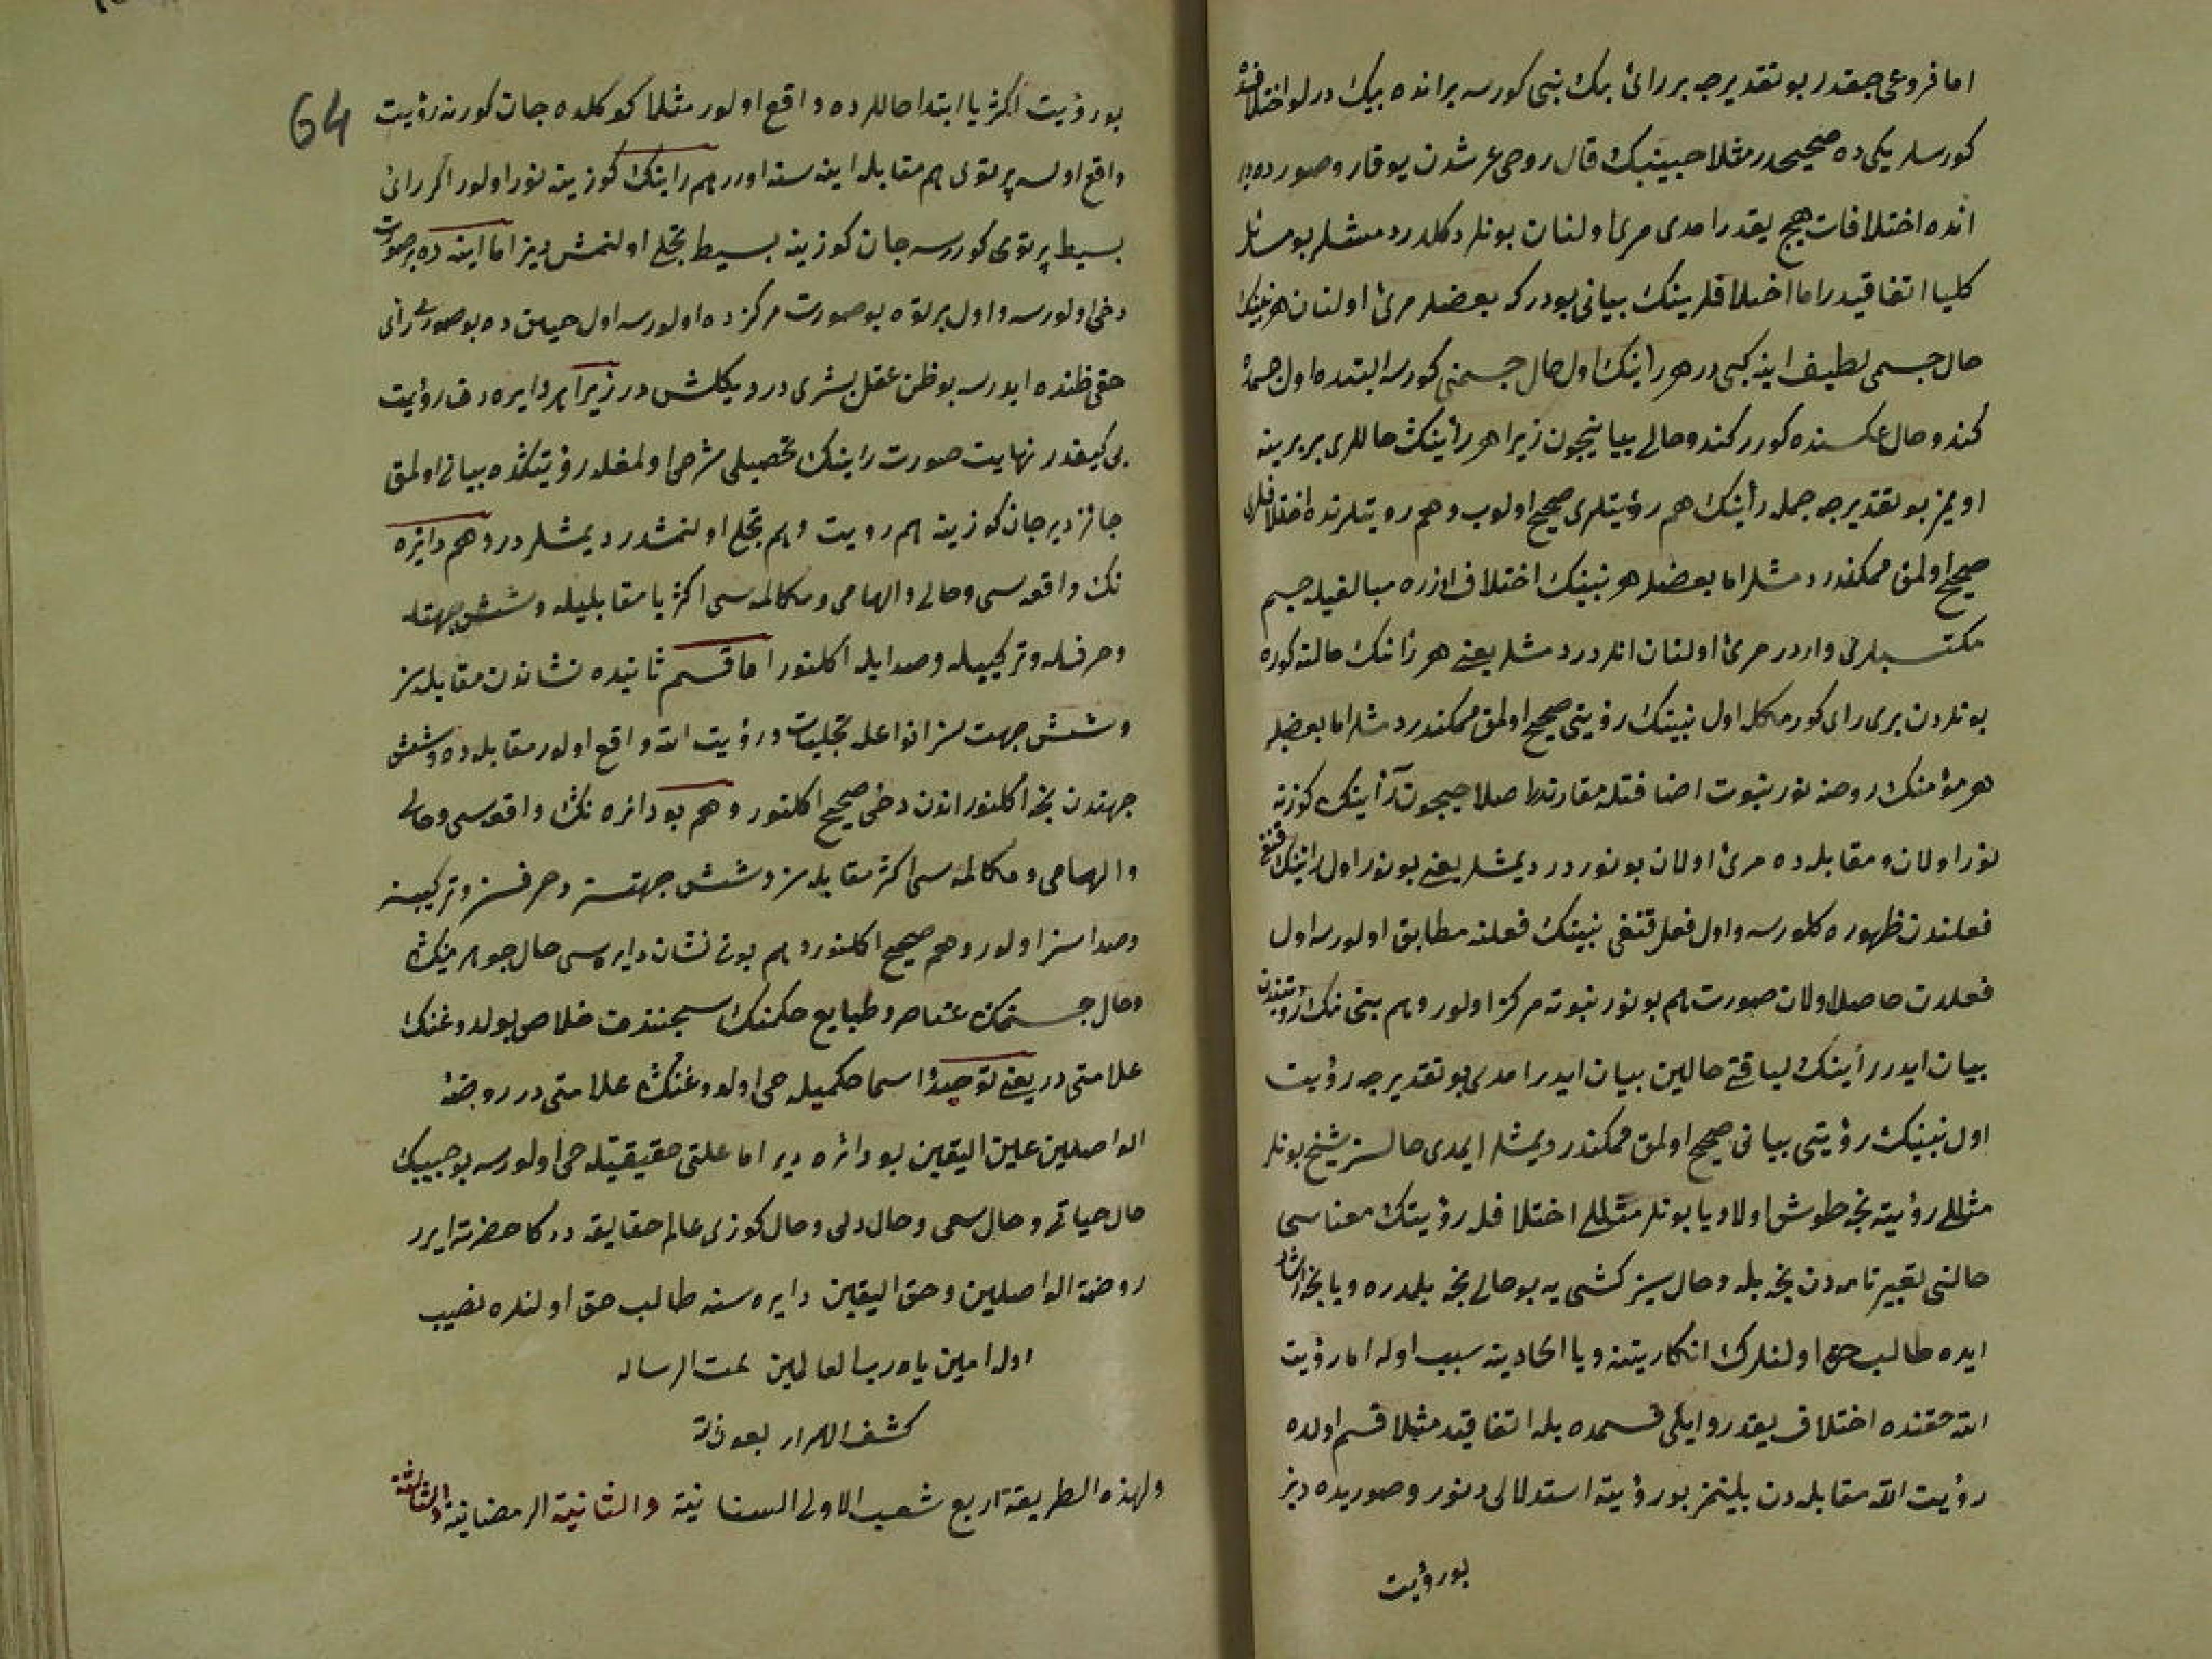 اما فروعی جقدر بو تقدیرجه بر رائ بیك نبی کورسه بر انده بیك درلو اختلافده
کورسه ییکی ده صحیحدر مثلا حبینیك قال روحی عرشدن یوقارو صورده در
انده اختلافات هیچ یقدر امدی مرئ اولنان بونلر دکلدر دمشلر بو مسائل
کلیا اتفاقیدر اما اختلافلرینك بیانی بودر که بعضلر مرئ اولنان هر نبینك
حال جسمی لطیف اینه کبی در هر راینك اول حال جسمنی کورسه البتده اول جسمده
کندو حال عکسنده کورر کندو حالی بیانیچون زیرا هر رأینك حاللری بربرینه
اویمز بو تقدیرجه جمله رأینك هم رؤیتلری صحیح اولوب و هم رویتلرنده اختلافلری
صحیح اولمق ممکندر دمشلر اما بعضلر هر نبینك اختلاف اوزره مبالغیله جسم
مکتسبلری واردر مرئ اولنان انلردر دمشلر یعنی هر رائنك حالنه کوره
بونلردن بری رای کورمکله اول نبینك رؤیتی صحیح اولمق ممکندر دمشلر اما بعضلر
هر مؤمنك روحنه نور نبوت اضافتله مقارندر اصلا حیچون رأینك کوزنه
نور اولان و مقابلده مرئ اولان بو نوردر دیمشلر یعنی بو نور اول راینك قنغی
فعلندن ظهوره کلورسه و اول فعل قنغی نبینك فعلنه مطابق اولورسه اول
فعلدن حاصل اولان صورت هم بو نور نبوته مرکز اولور و هم نبی نك رؤیتندن
بیان ایدر رأینك لیاقتی حالین بیان ایدر امدی بو تقدیرجه رؤیت
اول نبینك رؤیتی بیانی صحیح اولمق ممکندر دیمشلر ایمدی حالسز شیخ بونلر
مثللی رؤیته نجه طوش اولا و یا بونلر مثللی اختلافله رؤیتك معناسی
حالنی تعبیر نامه دن نجه بله و حال سیز کشی یه بو حالی نجه بلدره و یا نجه ارشاد
ایده طالب حق اولنلرك انکارینه و یا الحادینه سبب اوله اما رؤیت
الله حقنده اختلاف یقدر و ایکی قسمده بله اتفاقیدر مثلا قسم اولده
رؤیت الله مقابله دن بلینمز بو رؤیته استدلالی دنور و صوریده دیز
بو رؤیت
64
بو رؤیت اکثریا ابتدا حاللرده واقع اولور مثلا کوکلده جان کورنه رؤیت
واقع اولسه پرتوی هم مقابله اینه سنه اورر هم راینك کوزینه نور اولور اکر رائ
بسیط پرتوی کوررسه جان کوزینه بسیط تجلی اولنمش دیز اما اینه ده بر صورت
دخی اولورسه و اول پرتوه بو صورت مرکزده اولورسه اول حینده بو صورتی رائ
حق ظننده ایدرسه بو ظن عقل بشری در دیکلش در زیرا هر دایره دن رؤیت
بی کیفدر نهایت صورت راینك تحصیلی شرحی اولمغله رؤیتکده بیانی اولمق
جائزدیر جان کوزینه هم رویت و هم تجلی اولنمشدر دیمشلردر و هم دائره
نك واقعه سی و حالی و الهامی و مکالمه سی اکثریا مقابلیله و شش جهتله
و حرفله و ترکیبیله و صدا ایله اکلنور اما قسم ثانیده نشاندن مقابله سز
و شش جهت سز انواعله تجلیات و رؤیت الله واقع اولور مقابله ده و شش
جهتدن نجه اکلنور اندن دخی صحیح اکلنور و هم بو دائره نك واقعه سی و حالی
و الهامی و مکالمه سی اکثر مقابله سز و شش جهتسز و حرفسز و ترکیبسز
و صداسز اولور و هم صحیح اکلنور و هم بونی نشان دایره سی حال جوهرینك
و حال جسمنك عناصر و طبایع حکمنك سجنندن خلاص بولدوغنك
علامتی در یعنی توحیدی اسما حکمیله حی اولدوغنك علامتی در روضة
الواصلین عین الیقین بو دائره دیر اما علتی حقیقتیله حی اولورسه بو حبیبك
حال حیاتی و حال سمعی و حال دلی و حال کوزی عالم حقایقه درکاه حضرته ایرر
روضة الواصلین و حق الیقین دایره سنه طالب حق اولنلره نصیب
اوله امین یا رب العالمین تمت الرساله
کشف الاسرار بعون الله
ولهذه الطریقة اربع شعب الاولی السنانیة والثانیة الرمضانیة والثالثة